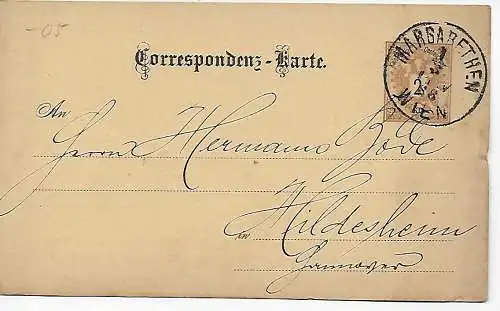 -05
Correspondenz-Karte.
MARGARETHEN
WIEN
An
Herrn Hermann Bode
in Hildesheim
Hannover